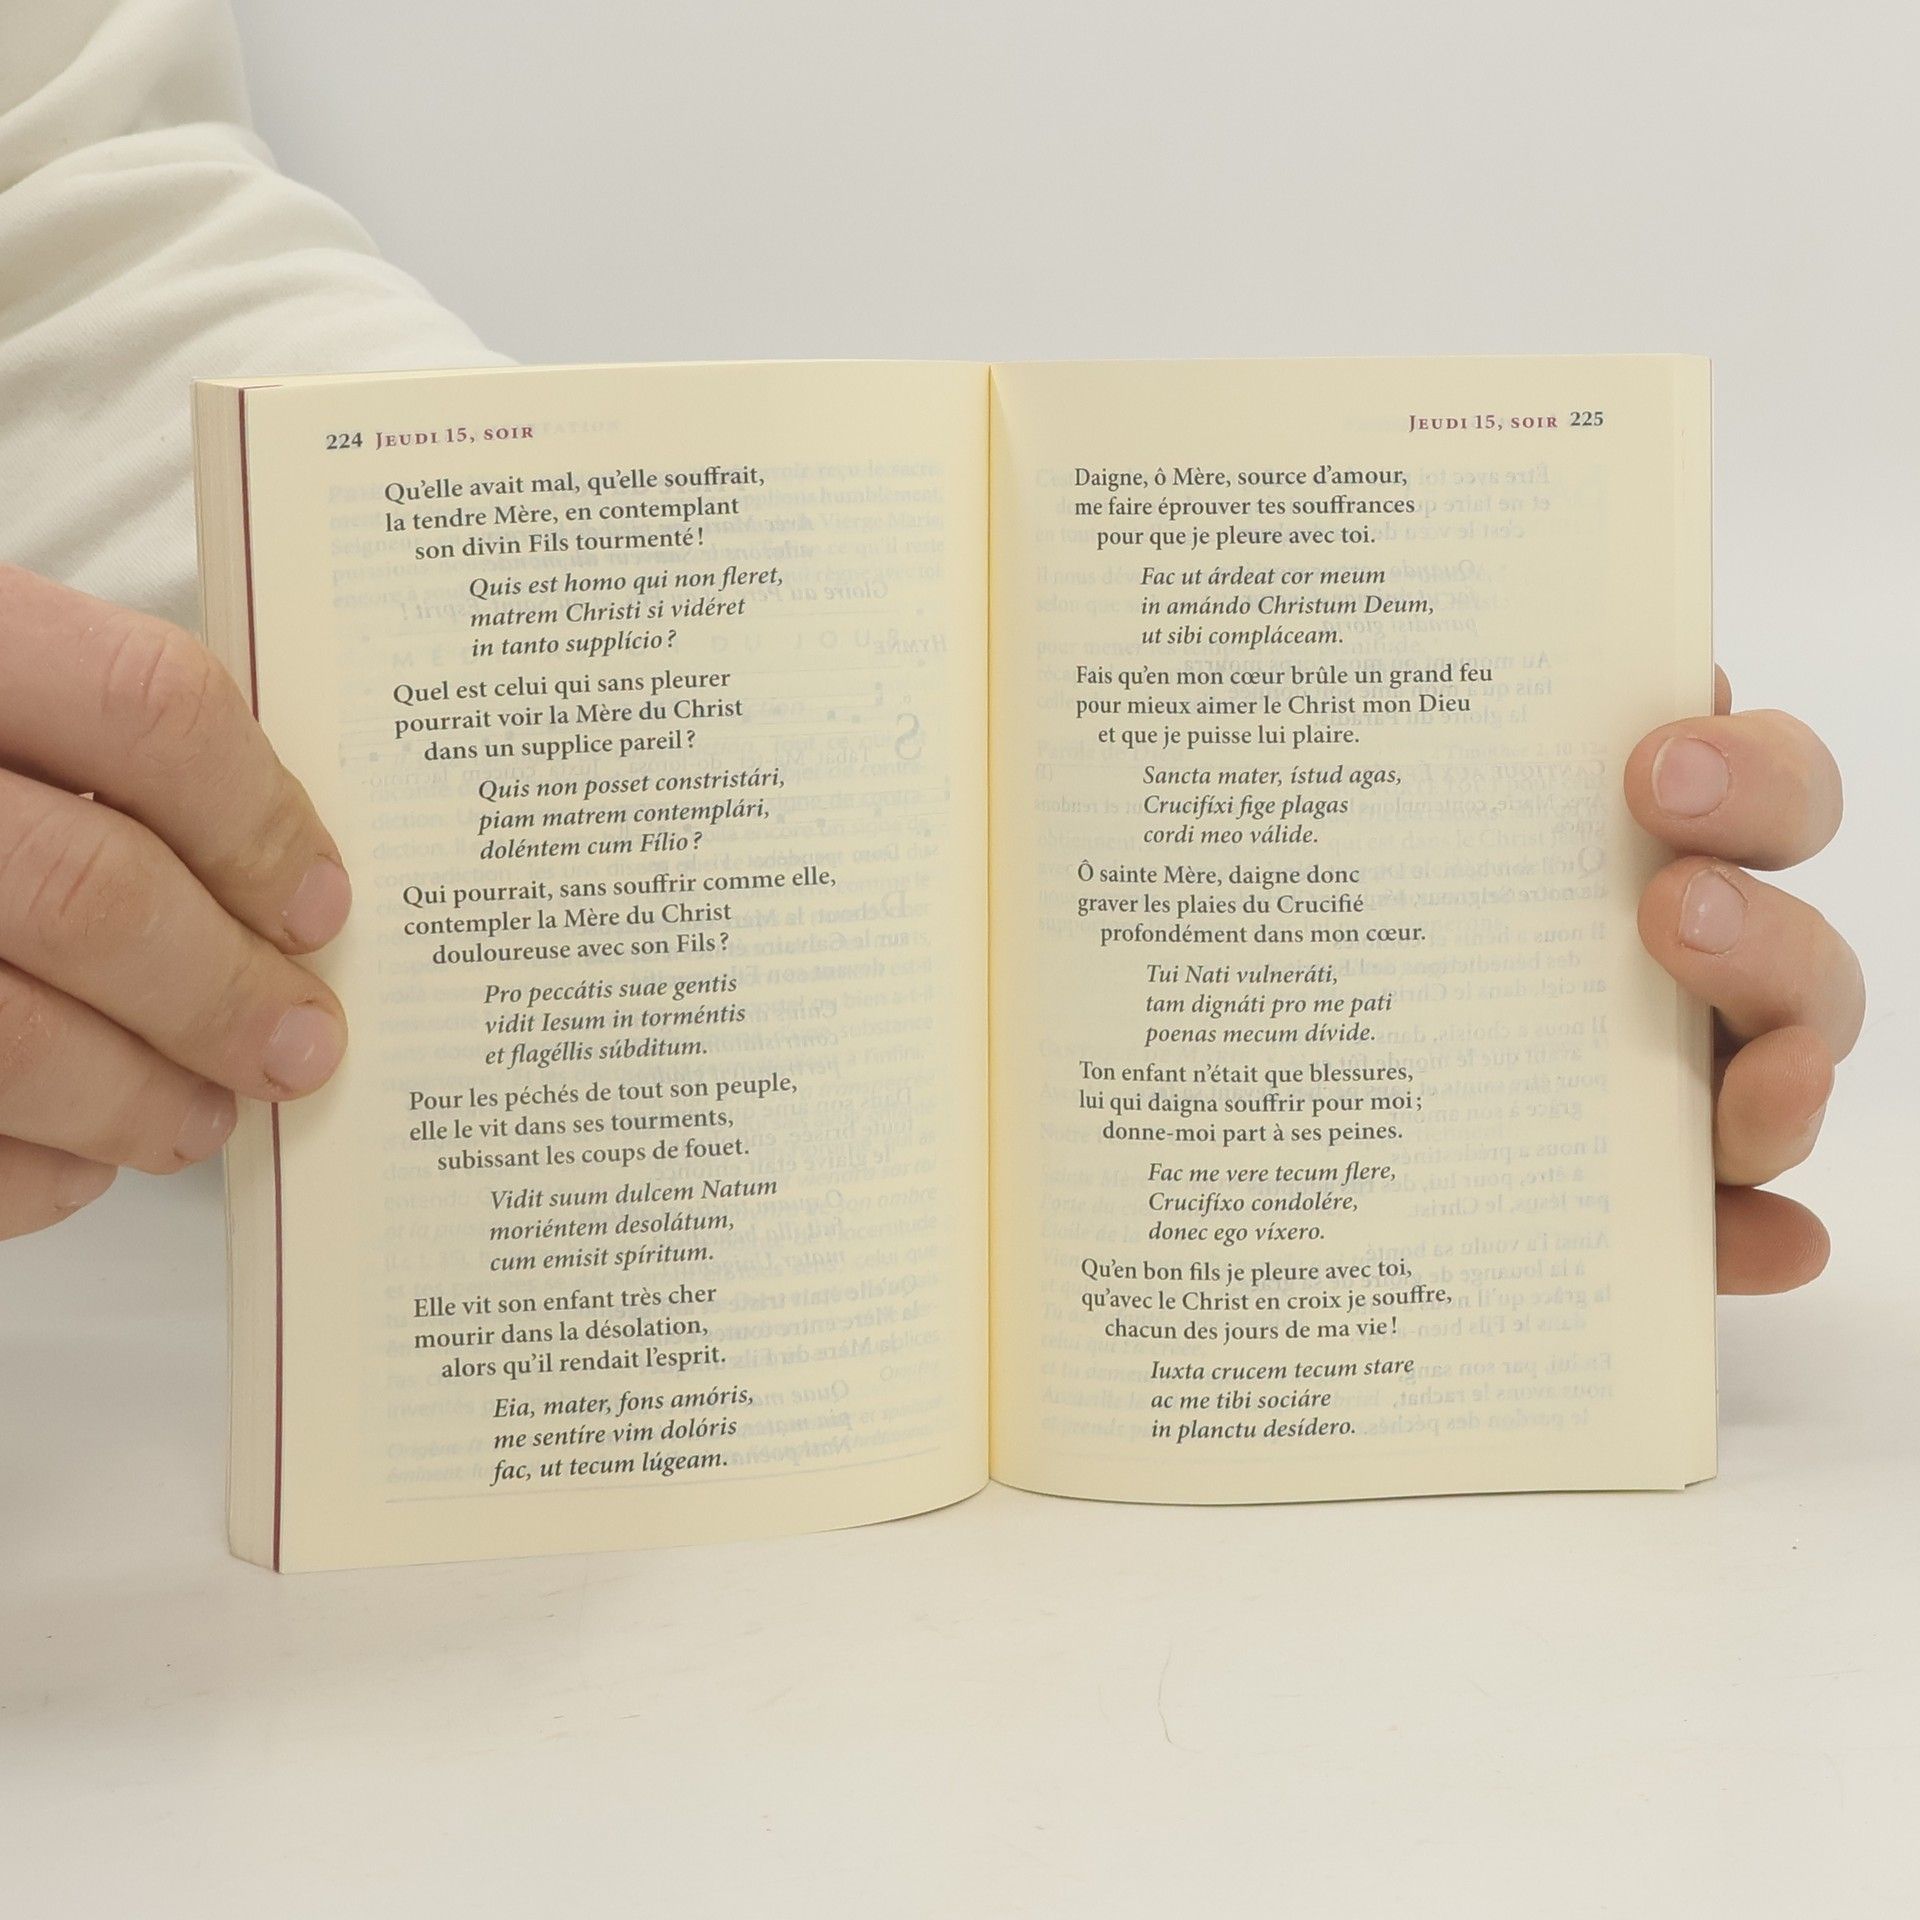 224 Jeudi 15, soir
Qu'elle avait mal, qu'elle souffrait,
la tendre Mère, en contemplant
son divin Fils tourmenté !
Quis est homo qui non fleret,
matrem Christi si vidéret
in tanto supplício ?
Quel est celui qui sans pleurer
pourrait voir la Mère du Christ
dans un supplice pareil ?
Quis non posset constristári,
piam matrem contemplári,
doléntem cum Fílio ?
Qui pourrait, sans souffrir comme elle,
contempler la Mère du Christ
douloureuse avec son Fils ?
Pro peccátis suae gentis
vidit Iesum in torméntis
et flagéllis súbditum.
Pour les péchés de tout son peuple,
elle le vit dans ses tourments,
subissant les coups de fouet.
Vidit suum dulcem Natum
moriéntem desolátum,
cum emisit spíritum.
Elle vit son enfant très cher
mourir dans la désolation,
alors qu'il rendait l'esprit.
Eia, mater, fons amóris,
me sentíre vim dolóris
fac, ut tecum lúgeam.
Jeudi 15, soir 225
Daigne, ô Mère, source d'amour,
me faire éprouver tes souffrances
pour que je pleure avec toi.
Fac ut árdeat cor meum
in amándo Christum Deum,
ut sibi compláceam.
Fais qu'en mon cœur brûle un grand feu
pour mieux aimer le Christ mon Dieu
et que je puisse lui plaire.
Sancta mater, ístud agas,
Crucifíxi fige plagas
cordi meo válide.
Ô sainte Mère, daigne donc
graver les plaies du Crucifié
profondément dans mon cœur.
Tui Nati vulneráti,
tam dignáti pro me pati
poenas mecum dívide.
Ton enfant n'était que blessures,
lui qui daigna souffrir pour moi ;
donne-moi part à ses peines.
Fac me vere tecum flere,
Crucifíxo condolére,
donec ego víxero.
Qu'en bon fils je pleure avec toi,
qu'avec le Christ en croix je souffre,
chacun des jours de ma vie !
Iuxta crucem tecum stare
ac me tibi sociáre
in planctu desídero.